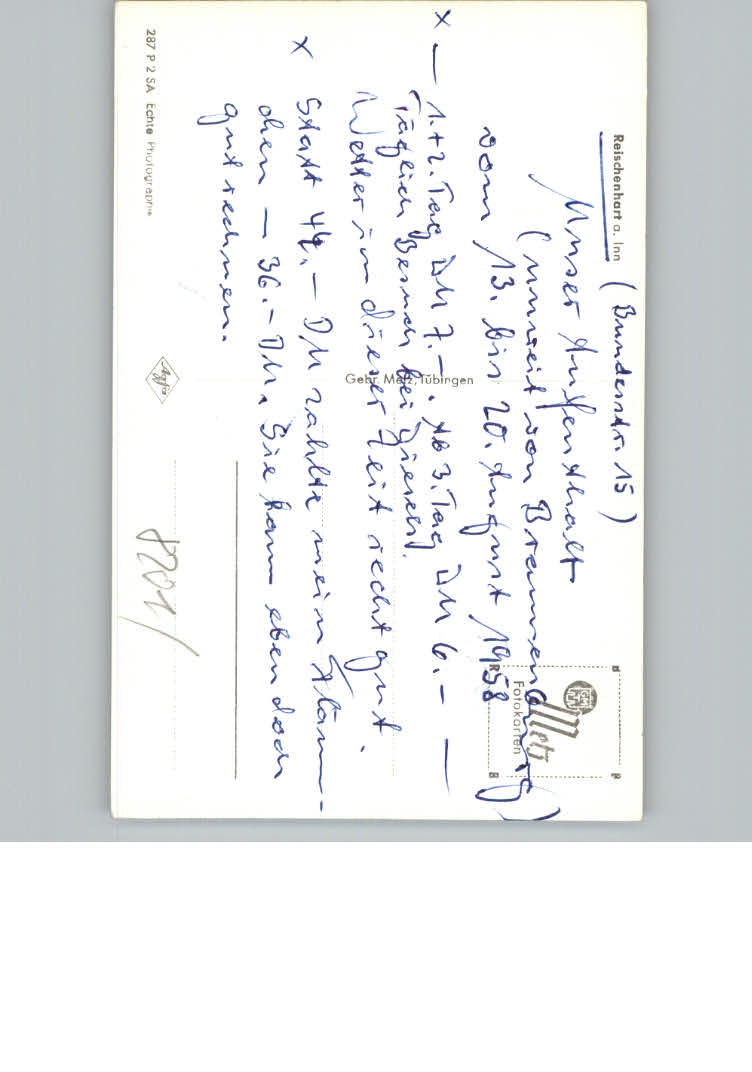 Reischenhart a. Inn (Bundesstr. 15)
Unser Aufenthalt
(unweit von Brannenburg)
vom 13. bis 20. August 1958
x — 1.+2. Tag DM 7.– . Ab 3. Tag DM 6.– —
Täglich Besuch bei
Wetter in dieser Zeit recht gut.
x Statt 44.– DM zahlte mein
chen — 36.– DM. Sie kann eben doch
gut rechnen.
287 P 2 SA Echte Photographie
Gebr. Metz, Tübingen
Agfa
Metz
Fotokarten
8201/